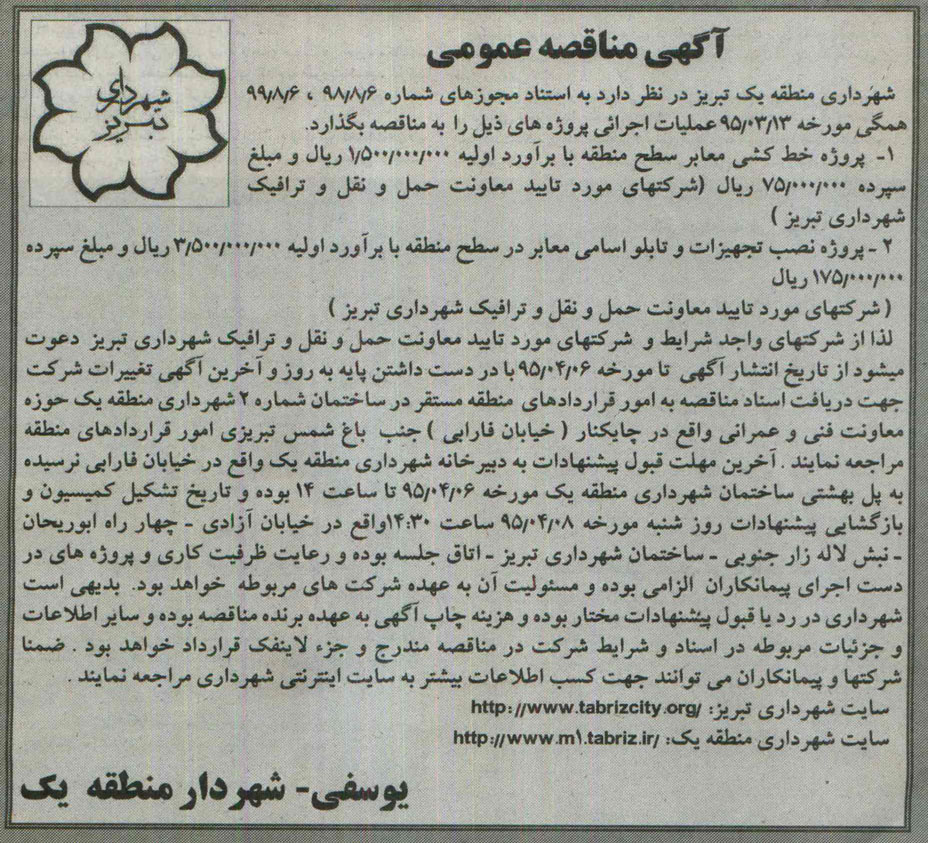 آگهی مناقصه عمومی
شهرداری تبریز
شهرداری منطقه یک تبریز در نظر دارد به استناد مجوزهای شماره ۹۸/۸/۶ ، ۹۹/۸/۶
همگی مورخه ۹۵/۰۳/۱۳عملیات اجرائی پروژه های ذیل را به مناقصه بگذارد.
۱- پروژه خط کشی معابر سطح منطقه با برآورد اولیه ۱/۵۰۰/۰۰۰/۰۰۰ ریال و مبلغ
سپرده ۷۵/۰۰۰/۰۰۰ ریال (شرکتهای مورد تایید معاونت حمل و نقل و ترافیک
شهرداری تبریز )
۲ - پروژه نصب تجهیزات و تابلو اسامی معابر در سطح منطقه با برآورد اولیه ۳/۵۰۰/۰۰۰/۰۰۰ ریال و مبلغ سپرده
۱۷۵/۰۰۰/۰۰۰ ریال
( شرکتهای مورد تایید معاونت حمل و نقل و ترافیک شهرداری تبریز )
لذا از شرکتهای واجد شرایط و شرکتهای مورد تایید معاونت حمل و نقل و ترافیک شهرداری تبریز دعوت
میشود از تاریخ انتشار آگهی تا مورخه ۹۵/۰۴/۰۶ با در دست داشتن پایه به روز و آخرین آگهی تغییرات شرکت
جهت دریافت اسناد مناقصه به امور قراردادهای منطقه مستقر در ساختمان شماره ۲ شهرداری منطقه یک حوزه
معاونت فنی و عمرانی واقع در چایکنار ( خیابان فارابی ) جنب باغ شمس تبریزی امور قراردادهای منطقه
مراجعه نمایند . آخرین مهلت قبول پیشنهادات به دبیرخانه شهرداری منطقه یک واقع در خیابان فارابی نرسیده
به پل بهشتی ساختمان شهرداری منطقه یک مورخه ۹۵/۰۴/۰۶ تا ساعت ۱۴ بوده و تاریخ تشکیل کمیسیون و
بازگشایی پیشنهادات روز شنبه مورخه ۹۵/۰۴/۰۸ ساعت ۱۴:۳۰واقع در خیابان آزادی - چهار راه ابوریحان
- نبش لاله زار جنوبی - ساختمان شهرداری تبریز - اتاق جلسه بوده و رعایت ظرفیت کاری و پروژه های در
دست اجرای پیمانکاران الزامی بوده و مسئولیت آن به عهده شرکت های مربوطه خواهد بود. بدیهی است
شهرداری در رد یا قبول پیشنهادات مختار بوده و هزینه چاپ آگهی به عهده برنده مناقصه بوده و سایر اطلاعات
و جزئیات مربوطه در اسناد و شرایط شرکت در مناقصه مندرج و جزء لاینفک قرارداد خواهد بود . ضمنا
شرکتها و پیمانکاران می توانند جهت کسب اطلاعات بیشتر به سایت اینترنتی شهرداری مراجعه نمایند .
سایت شهرداری تبریز: http://www.tabrizcity.org/
سایت شهرداری منطقه یک: http://www.m۱.tabriz.ir/
یوسفی- شهردار منطقه یک